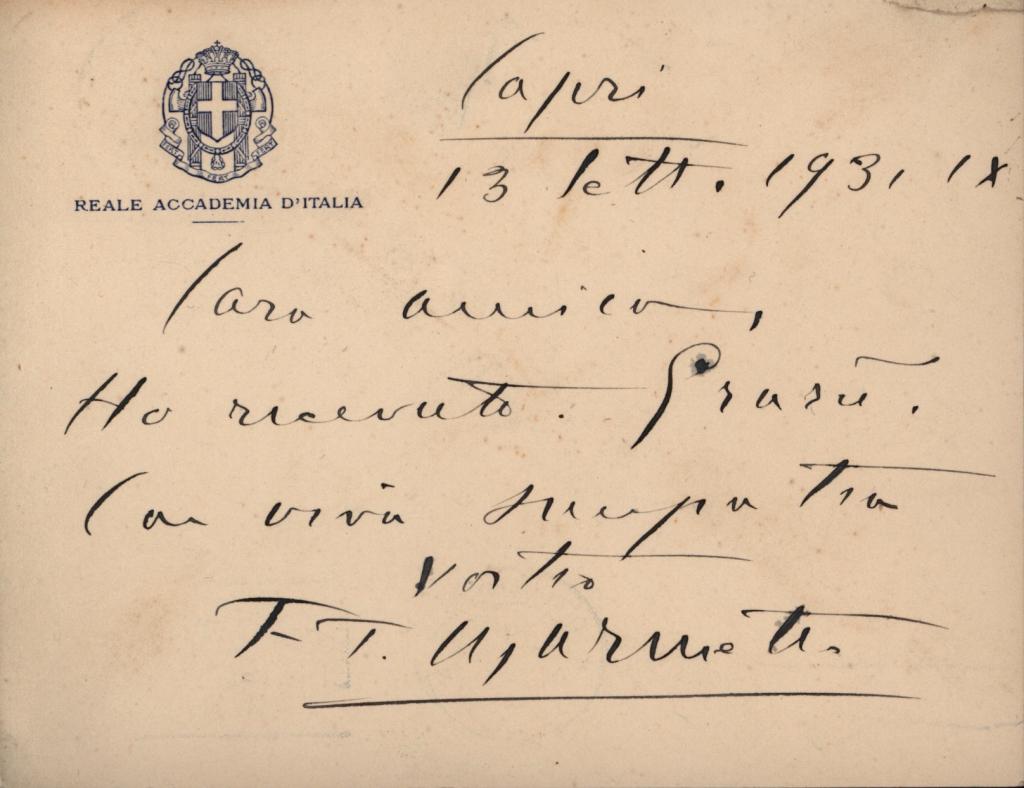 FERT FERT FERT
REALE ACCADEMIA D'ITALIA
Capri
13 Sett. 1931 IX
Caro amico,
Ho ricevuto. Grazie.
Con viva simpatia
Vostro
F. T. Marinetti